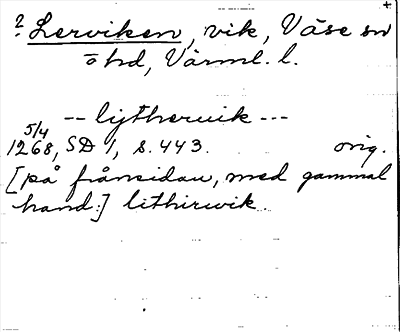 ? Lerviken, vik, Väse sn
o hd, Värml. l.
-- lijtherwik ---
5/4
1268, SD 1, s. 443. orig.
[på frånsidan, med gammal
hand:] lithirwik.